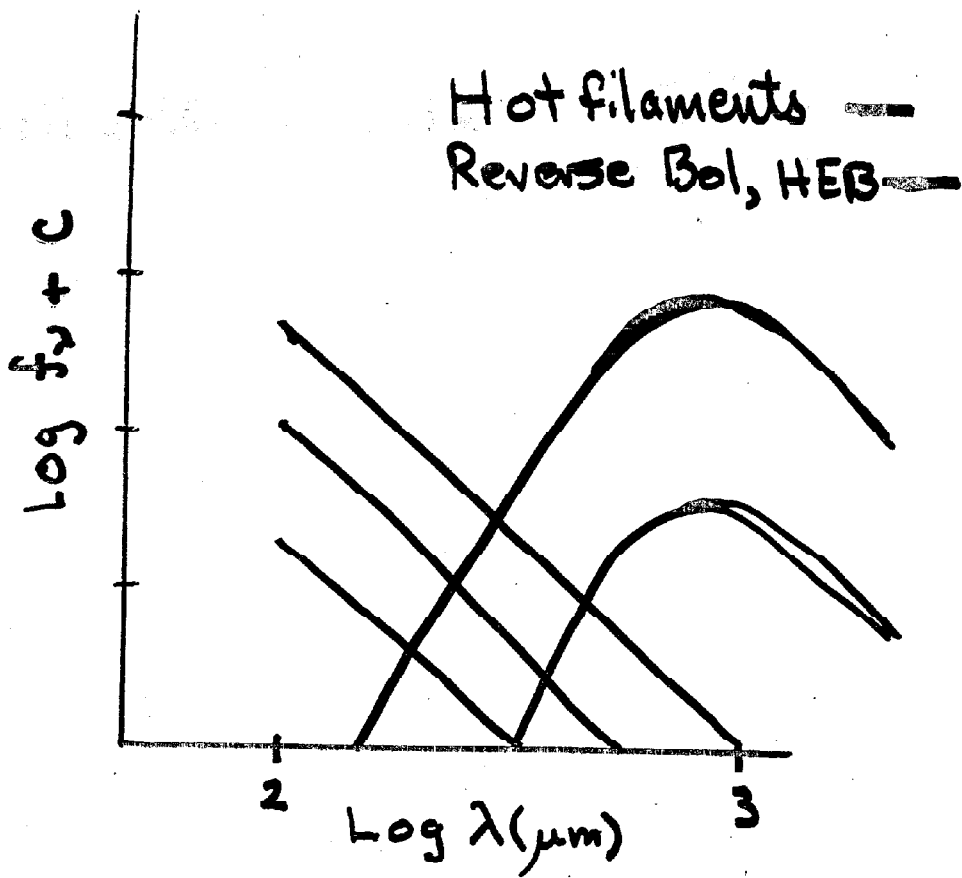 Hot filaments
Reverse Bol, HEB
Log fν + C
2
3
Log λ(μm)